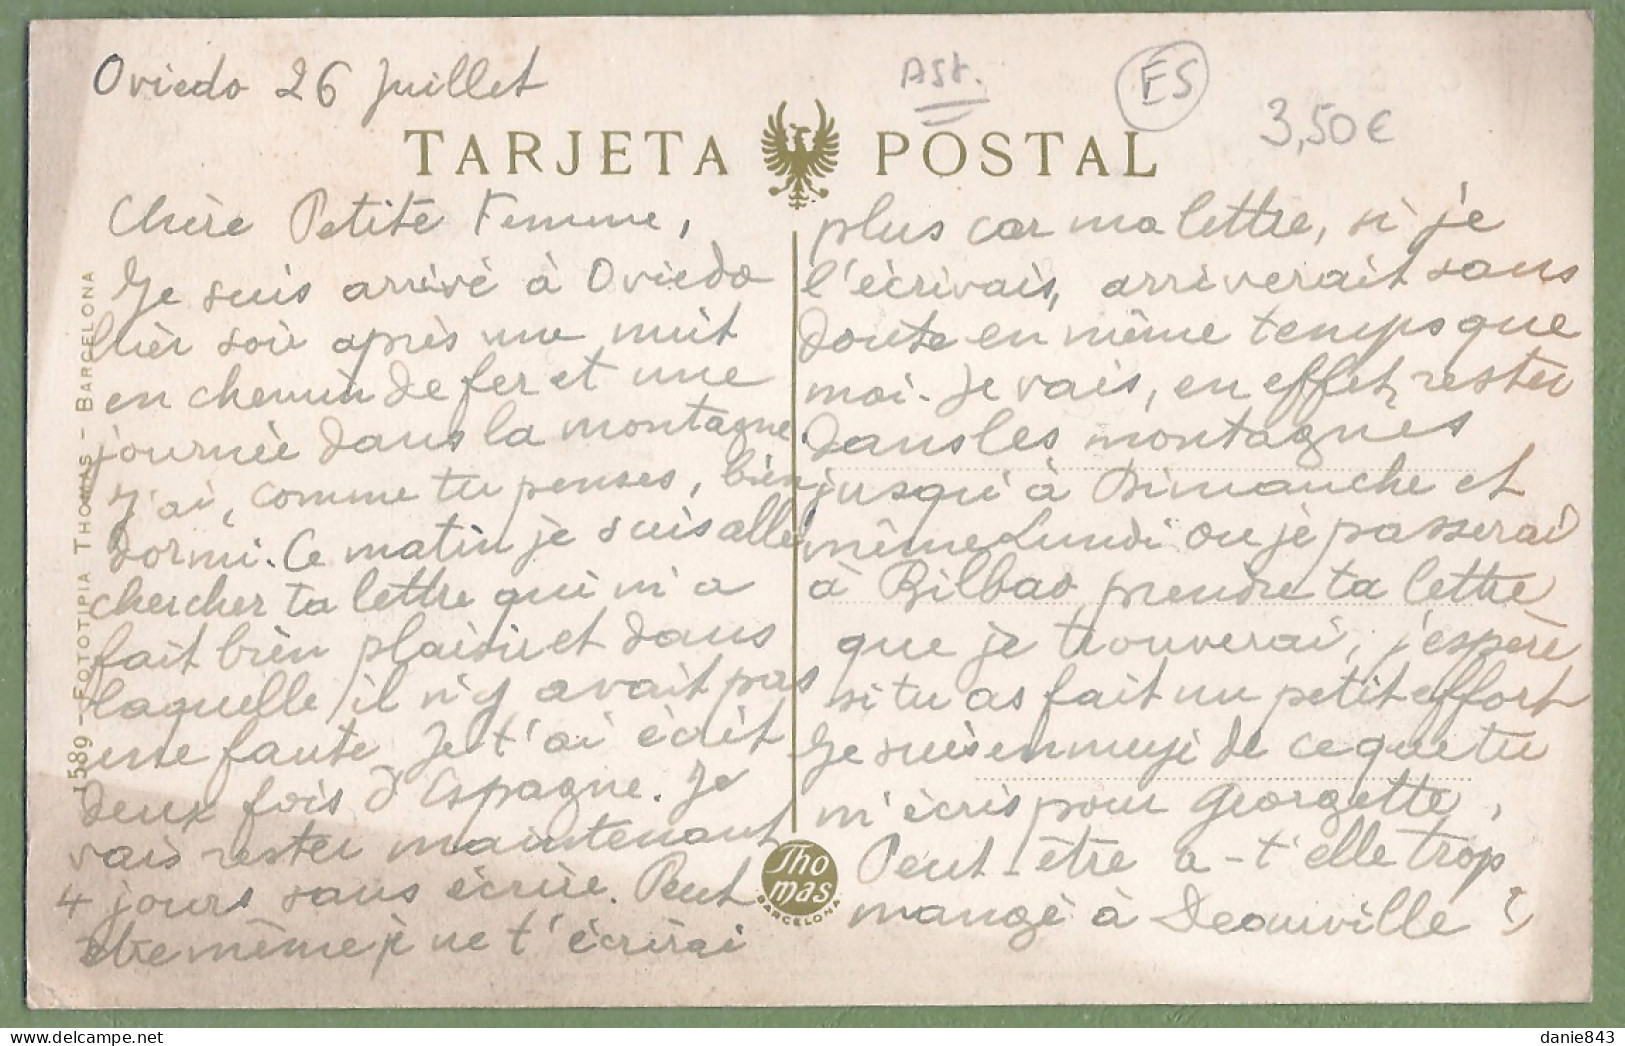 Oviedo 26 Juillet
Ast.
ES
3,50€
TARJETA POSTAL
Chère Petite Femme,
Je suis arrivé à Oviedo
hier soir après une nuit
en chemin de fer et une
journée dans la montagne.
J'ai, comme tu penses, bien
dormi. Ce matin je suis allé
chercher ta lettre qui m'a
fait bien plaisir et dans
laquelle il n'y avait pas
une faute. Je t'ai écrit
deux fois d'Espagne. Je
vais rester maintenant
4 jours sans écrire. Peut
être même je ne t'écrirai
plus car ma lettre, si je
l'écrivais, arriverait sans
doute en même temps que
moi. Je vais, en effet, rester
dans les montagnes
jusqu'à Dimanche et
même Lundi ou je passerai
à Bilbao prendre ta lettre
que je trouverai, j'espère
si tu as fait un petit effort
Je suis ennuyé de ce que tu
m'écris pour Georgette,
Peut-être a-t'elle trop
mangé à Deauville ?
1589 - FOTOTIPIA THOMAS - BARCELONA
Thomas
BARCELONA
danie843